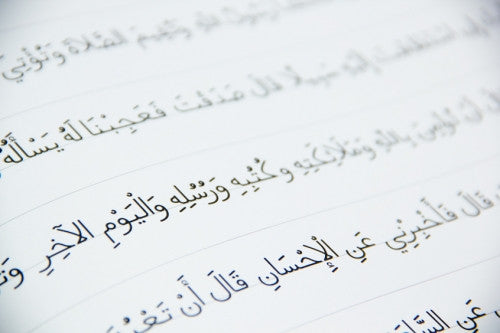 وَتُقِيمَ الصَّلَاةَ وَتُؤْتِيَ
اسْتَطَعْتَ إِلَيْهِ سَبِيلًا قَالَ صَدَقْتَ فَعَجِبْنَا لَهُ يَسْأَلُهُ
أَنْ تُؤْمِنَ بِاللَّهِ وَمَلَائِكَتِهِ وَكُتُبِهِ وَرُسُلِهِ وَالْيَوْمِ الْآخِرِ
قَالَ فَأَخْبِرْنِي عَنِ الْإِحْسَانِ قَالَ أَنْ
عَنِ